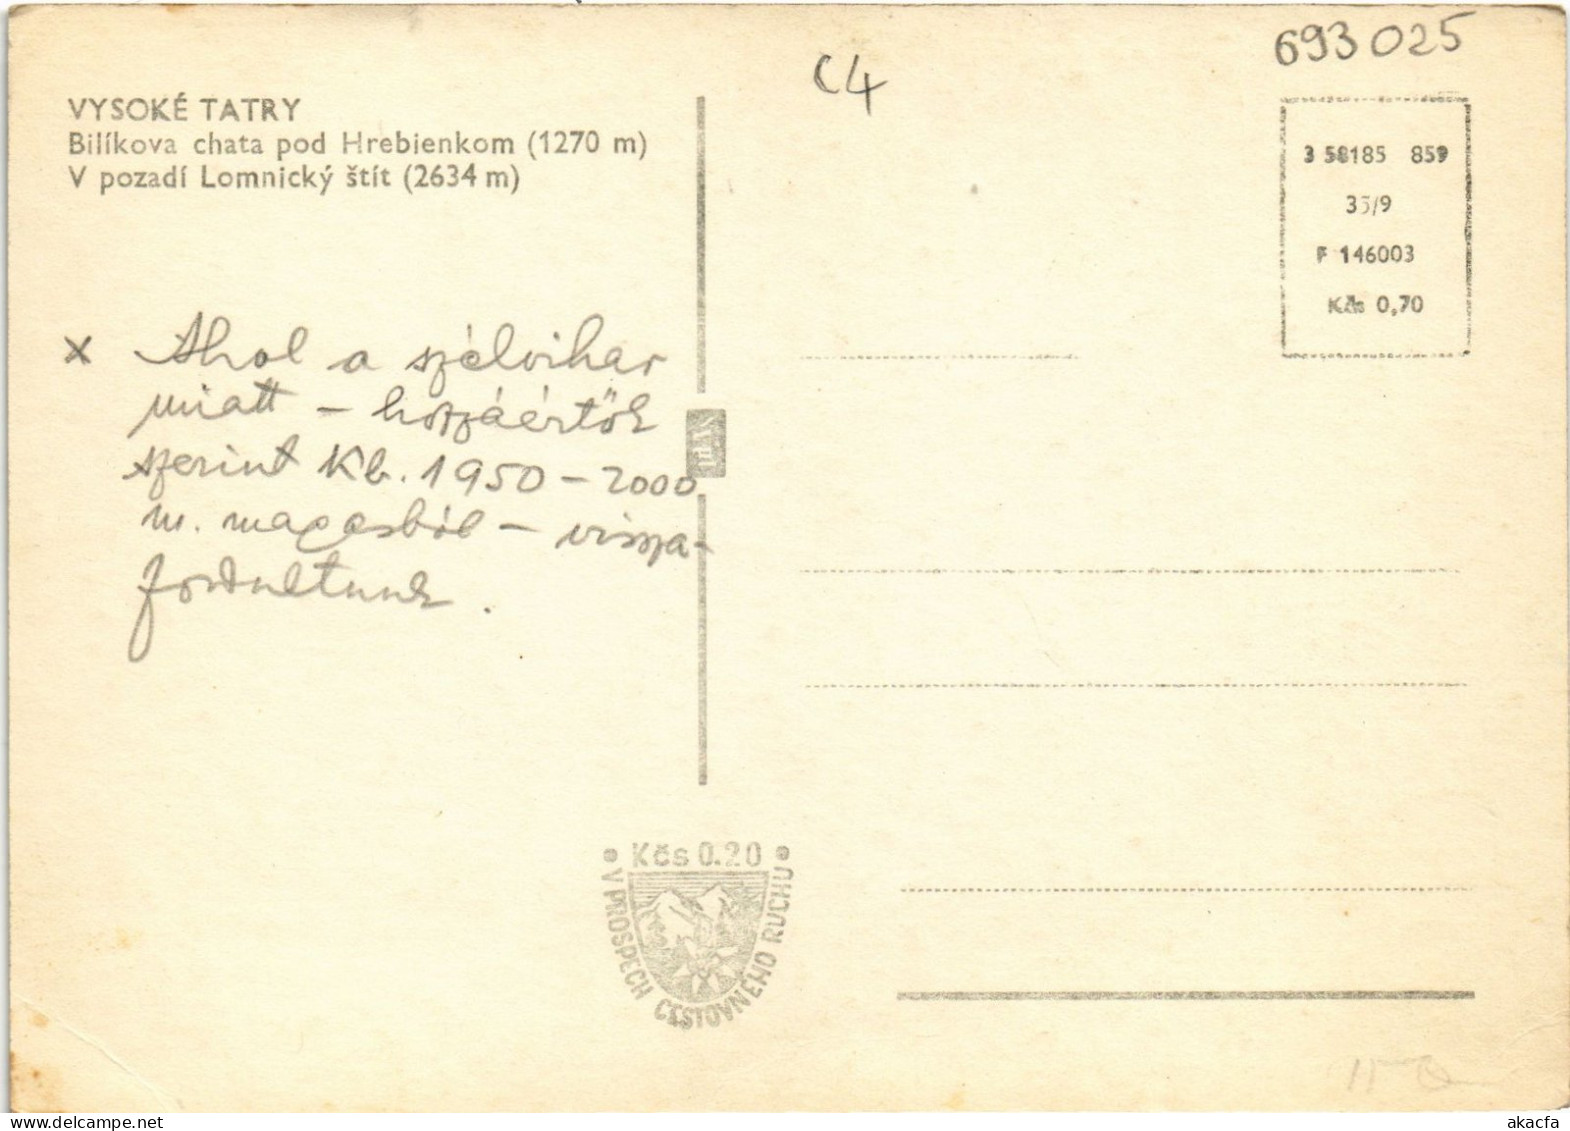 693025
C4
VYSOKÉ TATRY
Bilíkova chata pod Hrebienkom (1270 m)
V pozadí Lomnický štít (2634 m)
3 58185 859
35/9
F 146003
Kčs 0,70
x Ahol a szélvihar
miatt – hozzáértők
szerint kb. 1950 – 2000
m. magasból – vissza-
fordultunk.
Kčs 0.20
V PROSPECH CESTOVNÉHO RUCHU
delcampe.net
akacfa